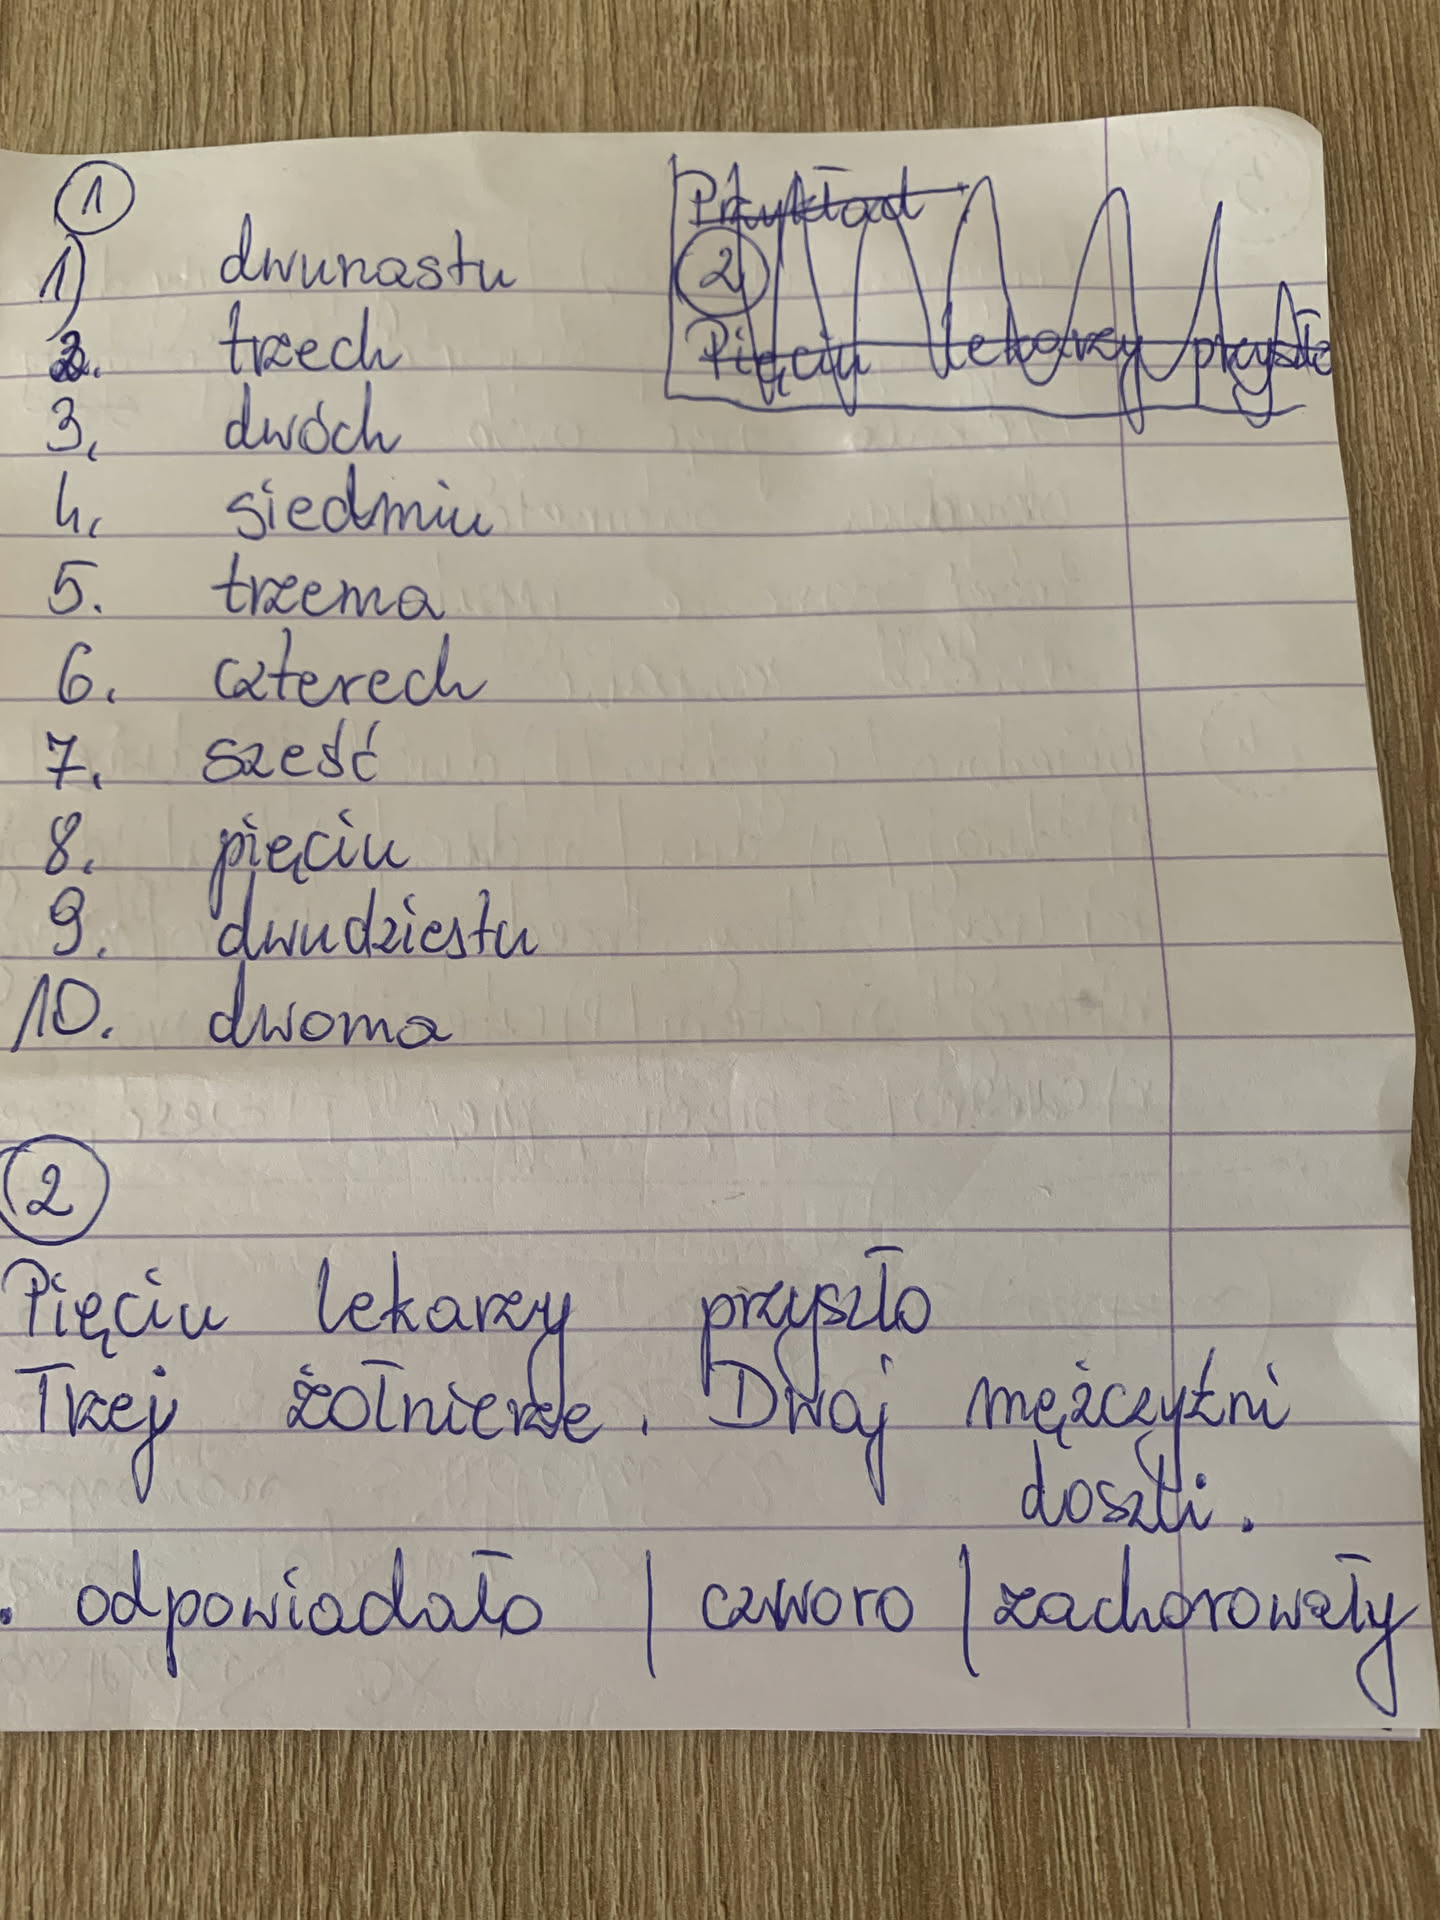 1
1) dwunastu
2. trzech
3. dwóch
4. siedmiu
5. trzema
6. czterech
7. sześć
8. pięciu
9. dwudziestu
10. dwoma
Przykład
2
Pięciu lekarzy przyszło
2
Pięciu lekarzy przyszło
Trzej żołnierze. Dwaj mężczyźni
doszli.
. odpowiadało | czworo | zachorowały